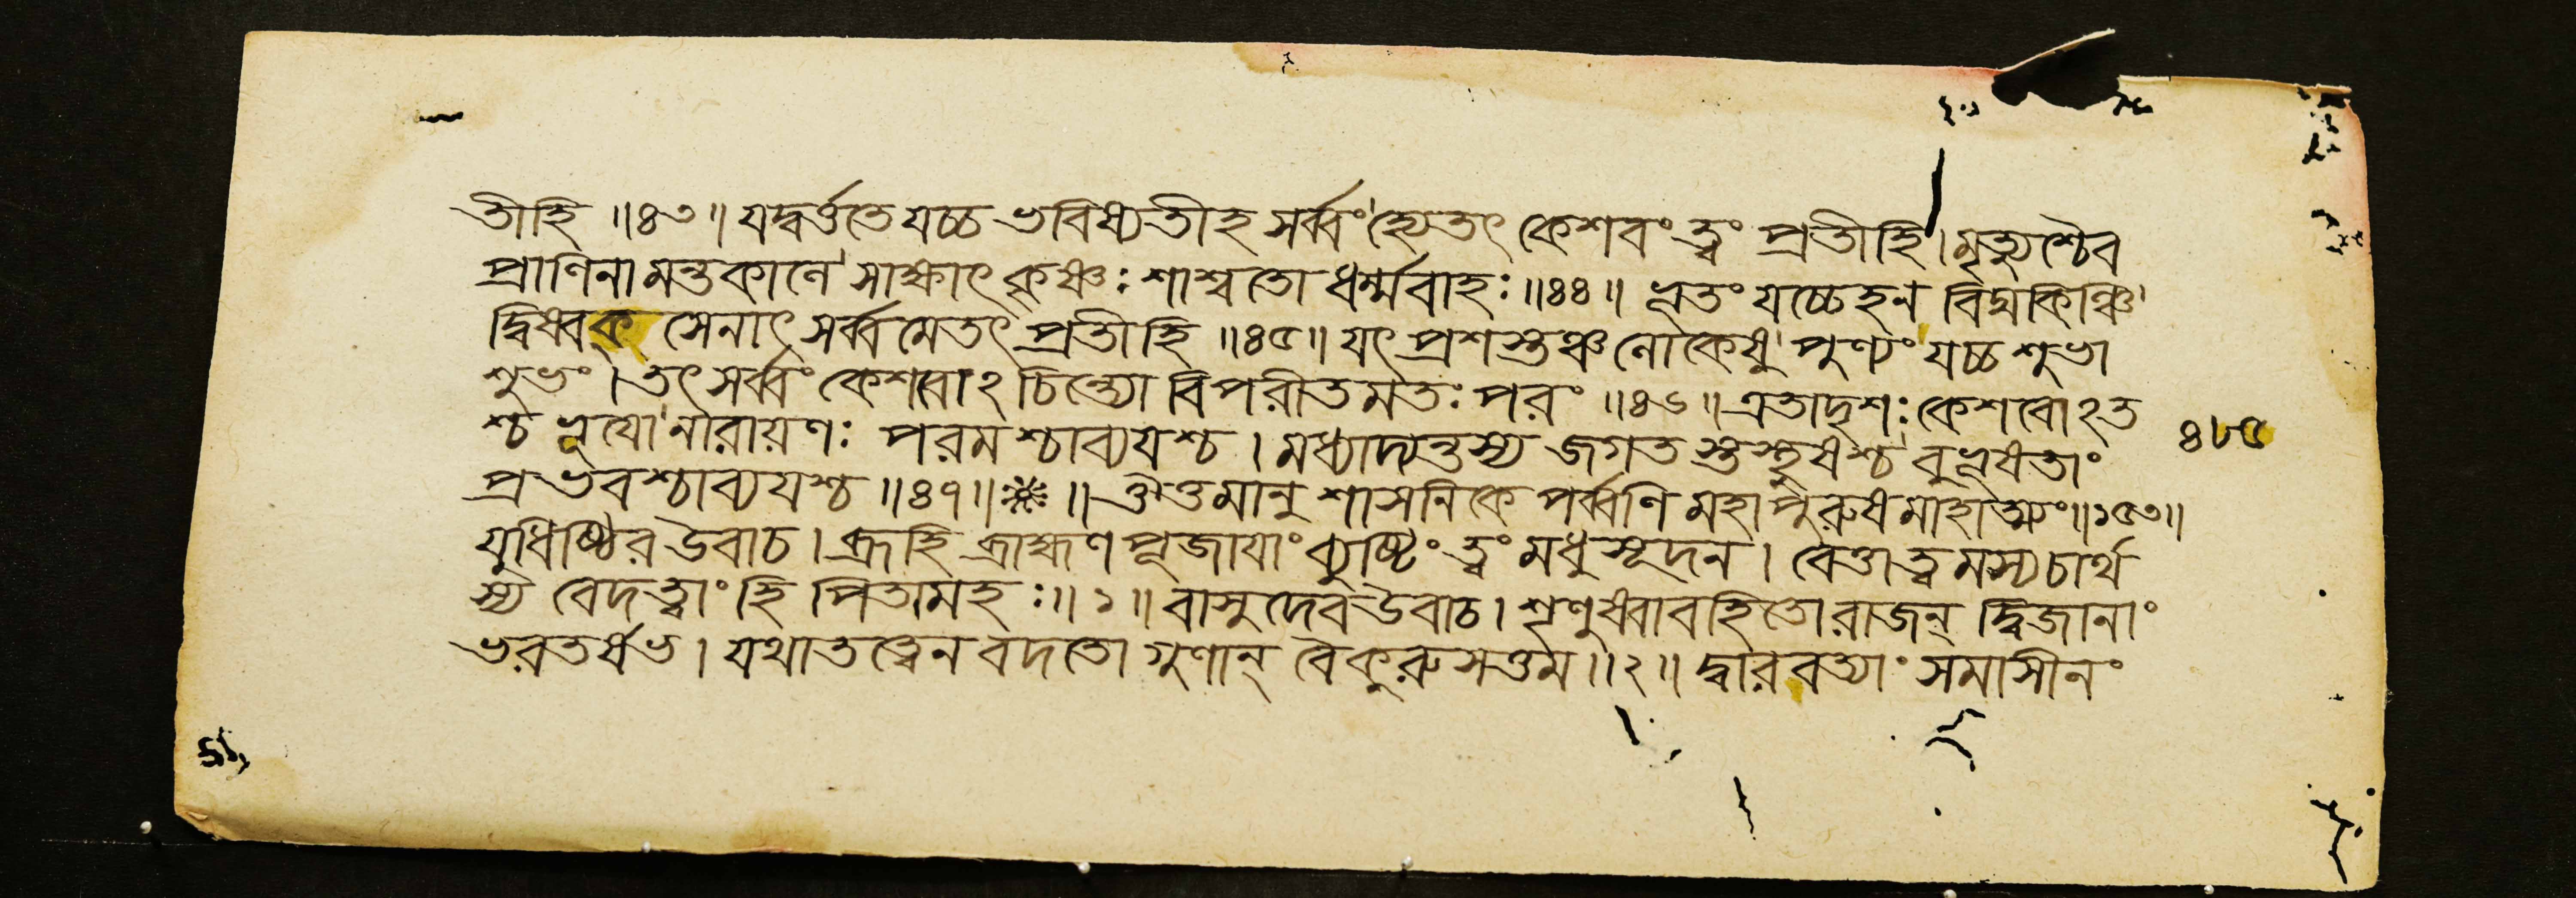 তীহি ॥৪৩॥ যদ্বর্ত্ততে যচ্চ ভবিষ্যতীহ সর্ব্বং হ্যেতৎ কেশবং ত্বং প্রতীহি। মৃত্যুশ্চৈব
প্রাণিনামন্তকালে সাক্ষাৎ কৃষ্ণঃ শাশ্বতো ধর্ম্মবাহঃ ॥৪৪॥ ভূতং যচ্চেহ ন বিদ্মকিঞ্চি
দ্বিষ্বক্ সেনাৎ সর্ব্বমেতৎ প্রতীহি ॥৪৫॥ যৎ প্রশস্তঞ্চ লোকেষু পুণ্যং যচ্চ শুভা
শুভং। তৎ সর্ব্বং কেশবোঽচিন্ত্যো বিপরীতমতঃ পরং ॥৪৬॥ এতাদৃশঃ কেশবোঽত
শ্চ ভূযো নারায়ণঃ পরমশ্চাব্যযশ্চ । মধ্যাদ্যন্তস্য জগতস্তস্থুষশ্চ বুভূষতাং
প্রভবশ্চাব্যযশ্চ ॥৪৭॥ ॥ ঔত্তমানুশাসনিকে পর্ব্বণি মহাপুরুষমাহাত্ম্যং ॥১৫৩॥
যুধিষ্ঠির উবাচ । ব্রূহি ব্রাহ্মণপূজাযাং ব্যুষ্টিং ত্বং মধুসূদন । বেত্তাত্বমস্য চার্থ
স্য বেদ ত্বাং হি পিতামহঃ ॥১॥ বাসুদেব উবাচ । শৃণুষ্বাবহিতো রাজন্ দ্বিজানাং
ভরতর্ষভ । যথাতত্ত্বেন বদতো গুণান্ বে কুরুসত্তম ॥২॥ দ্বারবত্যাং সমাসীনং
৪৮৫